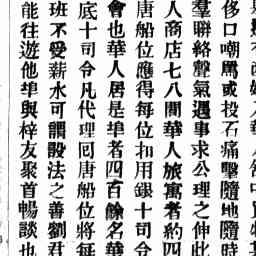 侈口嘲罵或投石痛擊隨地隨時
羣聯絡聲氣遇事求公理之伸此
人商店七八間華人旅寓者約四
唐船位應得每位扣用銀十司令
會也華人居是埠者四百餘名華
底十司令凡代理囘唐船位將每
班不受薪水可謂設法之善劉君
能往遊他埠與梓友聚首暢談也